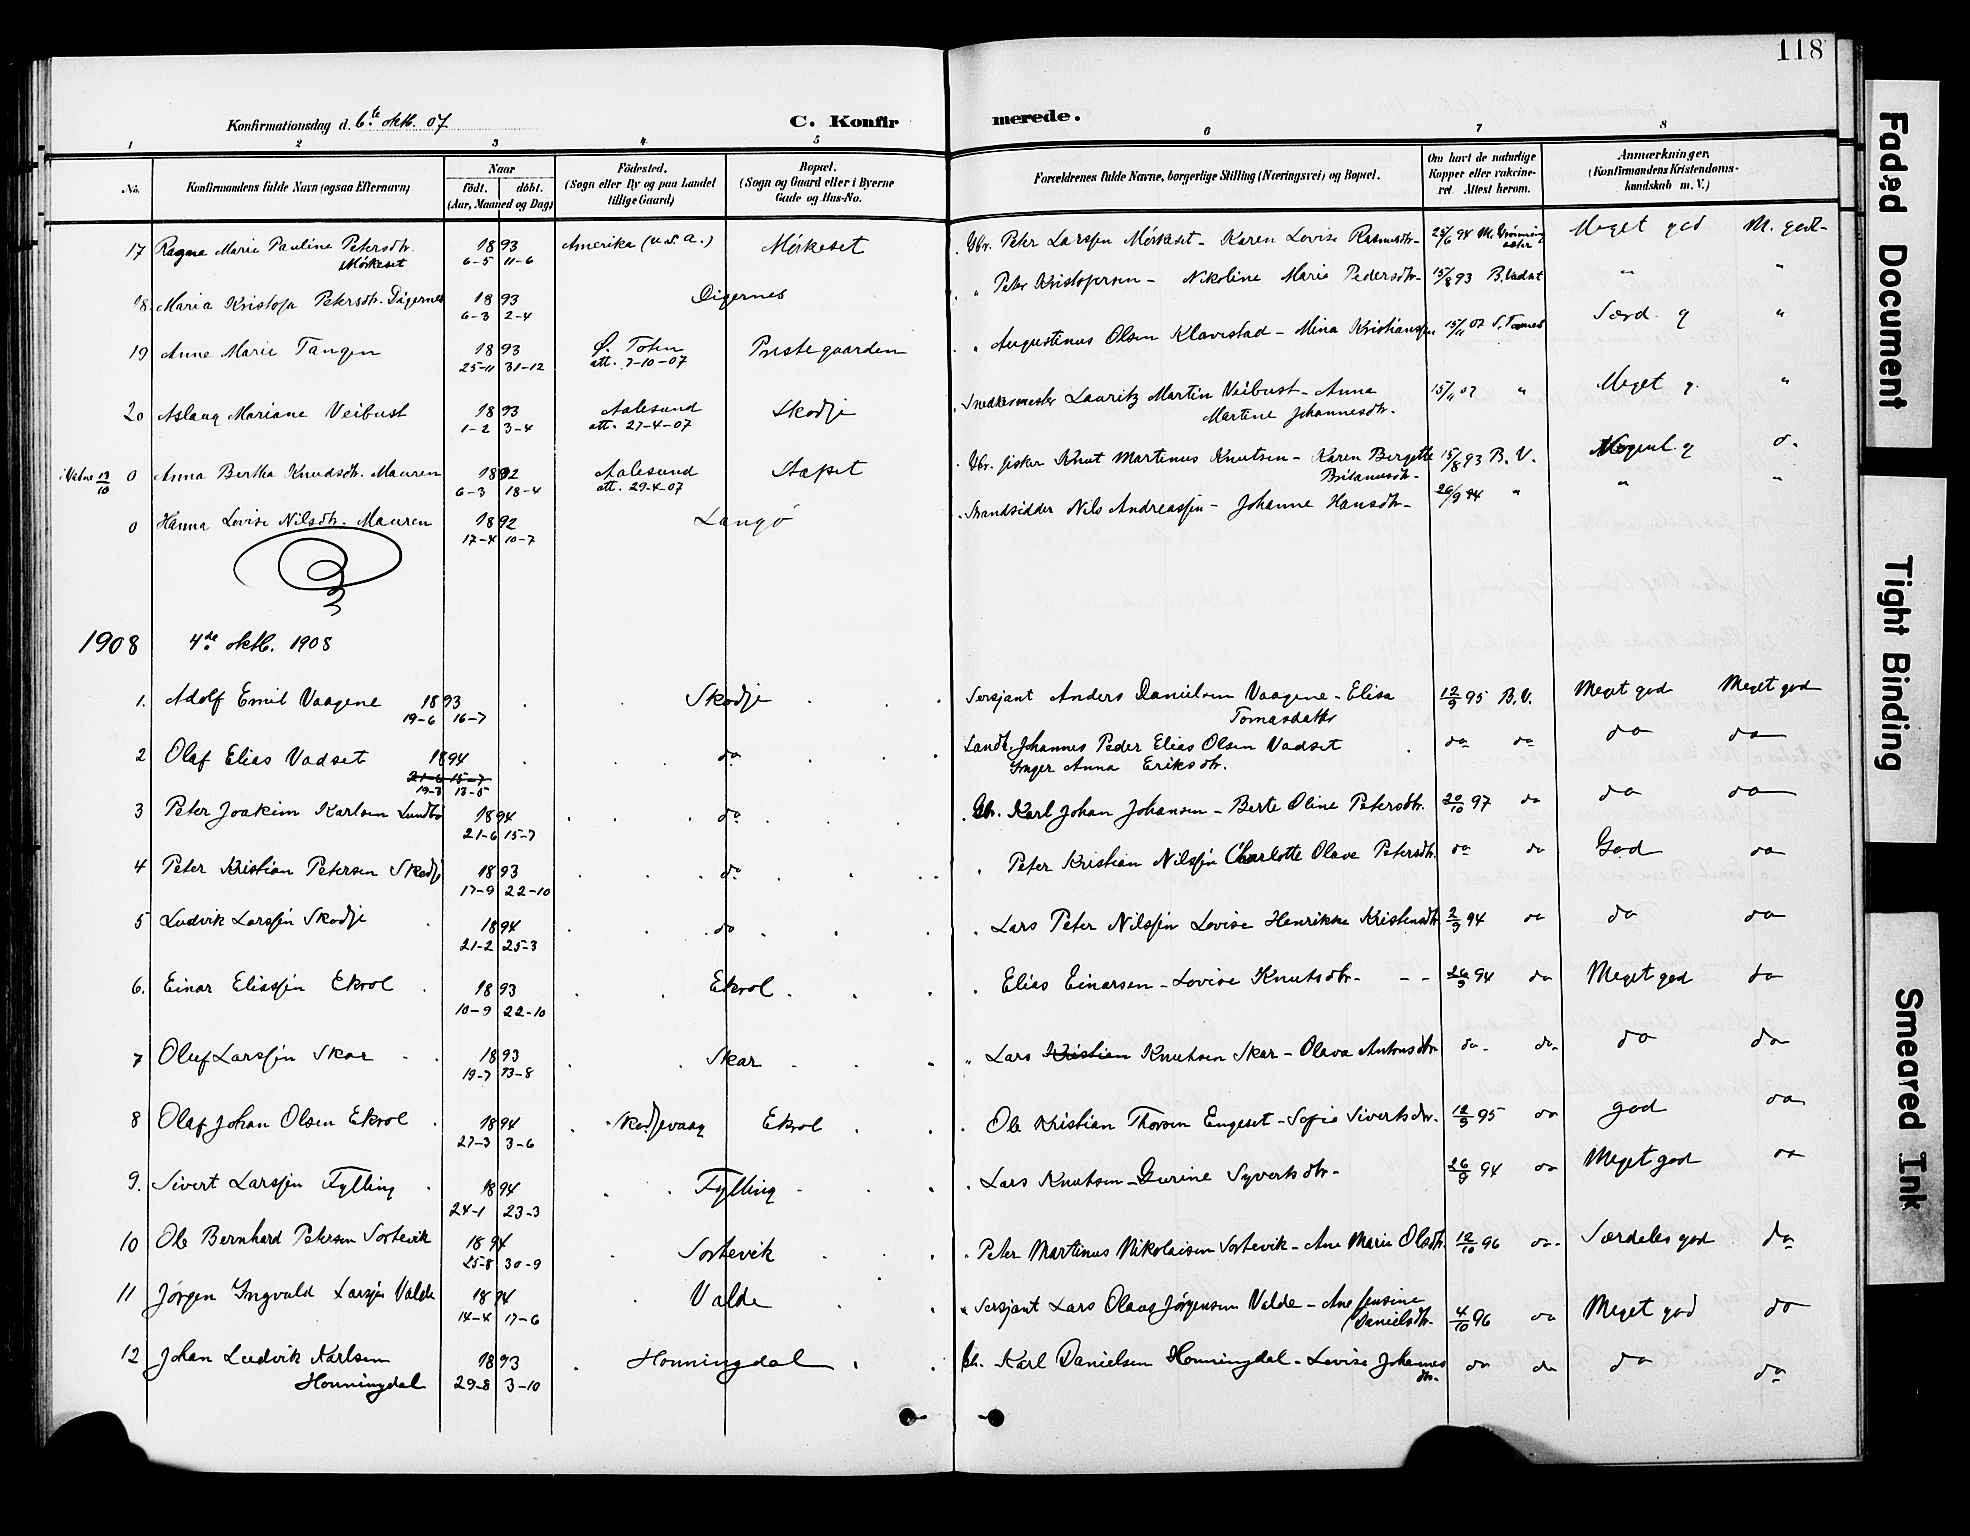 118
Konfirmationsdag d. 6te oktb. 07
C. Konfir merede.
1 2 3 4 5 6 7 8
No. Konfirmandens fulde Navn (ogsaa Efternavn)
Naar
født. døbt.
(Aar, Maaned og Dag)
Fødested.
(Sogn eller By og paa Landet
tillige Gaard)
Bopæl.
(Sogn og Gaard eller i Byerne
Gade og Hus-No.
Forældrenes fulde Navne, borgerlige Stilling (Næringsvei) og Bopæl.
Om havt de naturlige
Kopper eller vakcine-
ret. Attest herom.
Anmærkninger.
(Konfirmandens Kristendoms-
kundskab m. V.)
17 Ragna Marie Pauline Petersdtr. 1893 Amerika (U.S.A.) Mörkeset Gbr. Peter Larssen Mörkeset - Karen Lovise Rasmusdtr. 94 Meget god M. god
Mörkeset 6-5 11-6
18. Maria Kristofa Petersdtr. Digernes 1893 Digernes " Peter Kristofersen - Nikoline Marie Pedersdtr. 15/8 93 B. Vadset " "
6-3 2-4
19 Anne Marie Tangen 1893 Ø. Toten Prestegaarden " Augustinus Olsen Klavestad - Mina Kristianssen 15/11 07 Særd. g "
25-11 31-12 att. 7-10-07
20 Aslaug Mariane Veibust 1893 Aalesund Skodje Snedkermester Lauritz Martin Veibust - Anna 15/11 07 " Meget g. "
1-2 3-4 att. 27-4-07 Martine Johannesdtr.
0 Anna Bertha Knudsdtr. Mauren 1892 Aalesund Stapet Gbr. fisker Knut Martinus Knutsen - Karen Bergette 15/8 93 B. V. g
6-3 18-4 att. 29-4-07
0 Hanna Lovise Nilsdtr. Mauren 1892 Langø Strandsidder Nils Andreassen - Johanne Hansdtr. 26/9 94 " " "
17-4 10-7
1908 4de oktb. 1908
1. Adolf Emil Vaagene 1893 Skodje Sersjant Anders Danielsen Vaagene - Elisa 12/9 95 B.V. Meget god Meget god
19-6 16-7 Tomasdatter
2 Olaf Elias Vadset 1894 do Landh. Johannes Peder Elias Olsen Vadset do do do do
21-6 15-7 Inger Anna Eriksdtr.
19-3 13-5
3 Peter Joakim Karlsen Lundbø 1894 do Gbr. Karl Johan Johansen - Berte Oline Petersdtr. 20/10 97 do do do
21-6 15-7
4 Peter Kristian Petersen Skodje 1893 do " Peter Kristian Nilssen Charlotte Olave Petersdtr. do do God do
17-9 22-10
5 Ludvik Larssen Skodje 1894 do " Lars Peter Nilssen Lovise Henrikke Kristensdtr. 2/9 94 do do do
21-2 25-3
6. Einar Eliassen Ekrol 1893 Ekrol " Elias Einarsen - Lovise Knutsdtr. - - 26/9 94 do Meget god do
10-9 22-10
7 Oluf Larssen Skar 1893 Skar " Lars Kristian Knutsen Skar - Olava Antonsdtr. do do do do
19-7 13-8
8 Olaf Johan Olsen Ekrol 1894 Skodjevaag Ekrol " Ole Kristian Thorsen Engeset - Sofie Sivertsdtr. 12/9 95 do god do
27-3 3-6
9. Sivert Larssen Fylling 1894 Fylling " Lars Knutsen - Gurine Syvertsdtr. 26/9 94 do Meget god do
24-1 23-3
10 Ole Bernhard Petersen Sortevik 1894 Sortevik " Peter Martinus Nikolaisen Sortevik - Ane Marie Olsdtr. 12/10 96 do Særdeles god do
25-8 30-9
11 Jørgen Ingvald Larssen Valde 1894 Valde " Sersjant Lars Olaus Jørgensen Valde - Ane Jensine 4/10 96 do Meget god do
14-4 17-6 Danielsdtr.
12 Johan Ludvik Karlsen 1893 Honningdal Gb. Karl Danielsen Honningdal - Lovise Johannes do do do do
Honningdal 29-8 3-10 dtr.
Faded Document
Tight Binding
Smeared Ink